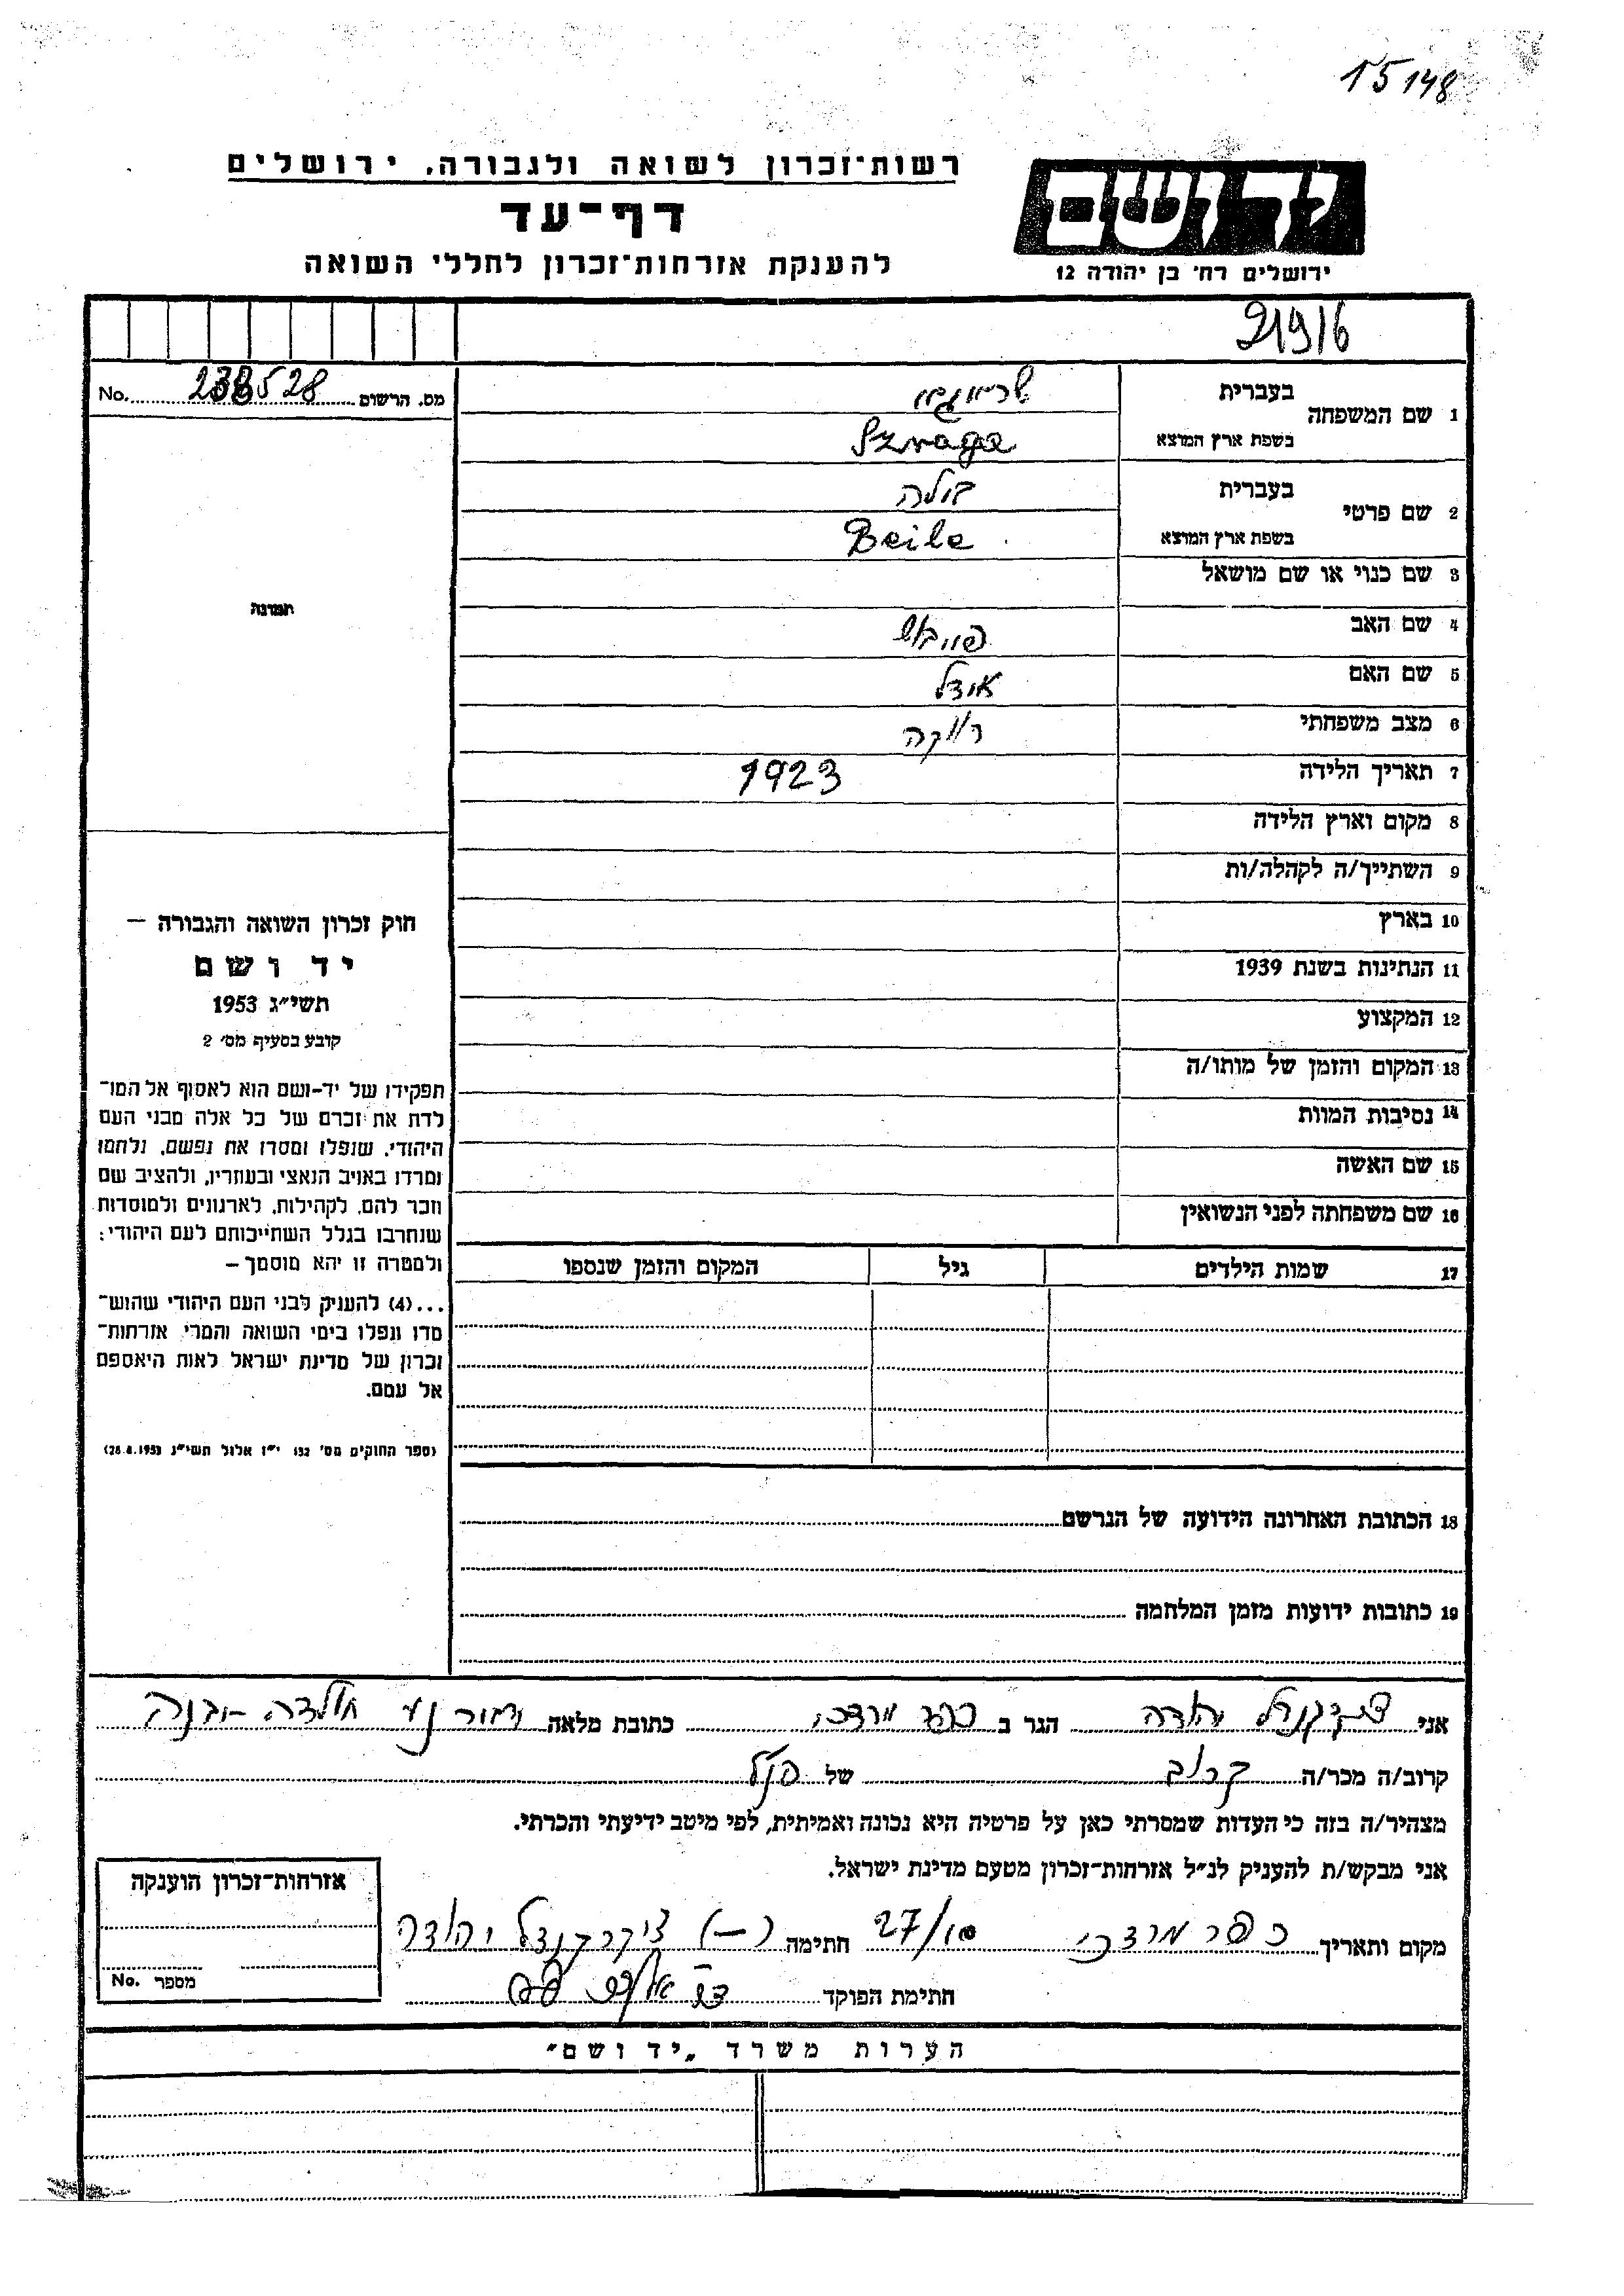 15148
רשות־זכרון לשואה ולגבורה, ירושלים
דף־עד
להענקת אזרחות־זכרון לחללי השואה
יד ושם
ירושלים רח׳ בן יהודה 12
21916
1 שם המשפחה
בעברית
בשפת ארץ המוצא Szraga
2 שם פרטי
בעברית בילה
בשפת ארץ המוצא Beile
3 שם כנוי או שם מושאל
4 שם האב פייבוש
5 שם האם אידל
6 מצב משפחתי רווקה
7 תאריך הלידה 1923
8 מקום וארץ הלידה
9 השתייך/ה לקהלה/ות
10 בארץ
11 הנתינות בשנת 1939
12 המקצוע
13 המקום והזמן של מותו/ה
14 נסיבות המוות
15 שם האשה
16 שם משפחתה לפני הנשואין
17 שמות הילדים גיל המקום והזמן שנספו
18 הכתובת האחרונה הידועה של הנרשם
19 כתובות ידועות מזמן המלחמה
מס. הרשום 238528 No.
תמונה
חוק זכרון השואה והגבורה –
יד ושם
תשי״ג 1953
קובע בסעיף מס׳ 2
תפקידו של יד–ושם הוא לאסוף אל המו־
לדת את זכרם של כל אלה מבני העם
היהודי, שנפלו ומסרו את נפשם, נלחמו
ומרדו באויב הנאצי ובעוזריו, ולהציב שם
וזכר להם, לקהילות, לארגונים ולמוסדות
שנחרבו בגלל השתייכותם לעם היהודי;
ולמטרה זו יהא מוסמך –
...(4) להעניק לבני העם היהודי שהוש־
מדו ונפלו בימי השואה והמרי אזרחות־
זכרון של מדינת ישראל לאות היאספם
אל עמם.
(ספר החוקים מס׳ 132 י״ז אלול תשי״ג 28.8.1953)
אני צוקרקנדל יהודה הגר ב כפר מרדכי כתובת מלאה חולדה יבנה
קרוב/ה מכר/ה קרוב של הנ״ל
מצהיר/ה בזה כי העדות שמסרתי כאן על פרטיה היא נכונה ואמיתית, לפי מיטב ידיעתי והכרתי.
אני מבקש/ת להעניק לנ״ל אזרחות־זכרון מטעם מדינת ישראל.
מקום ותאריך כפר מרדכי 27/10 חתימה (–) צוקרקנדל יהודה
חתימת הפוקד
אזרחות־זכרון הוענקה
מספר No.
הערות משרד „יד ושם״